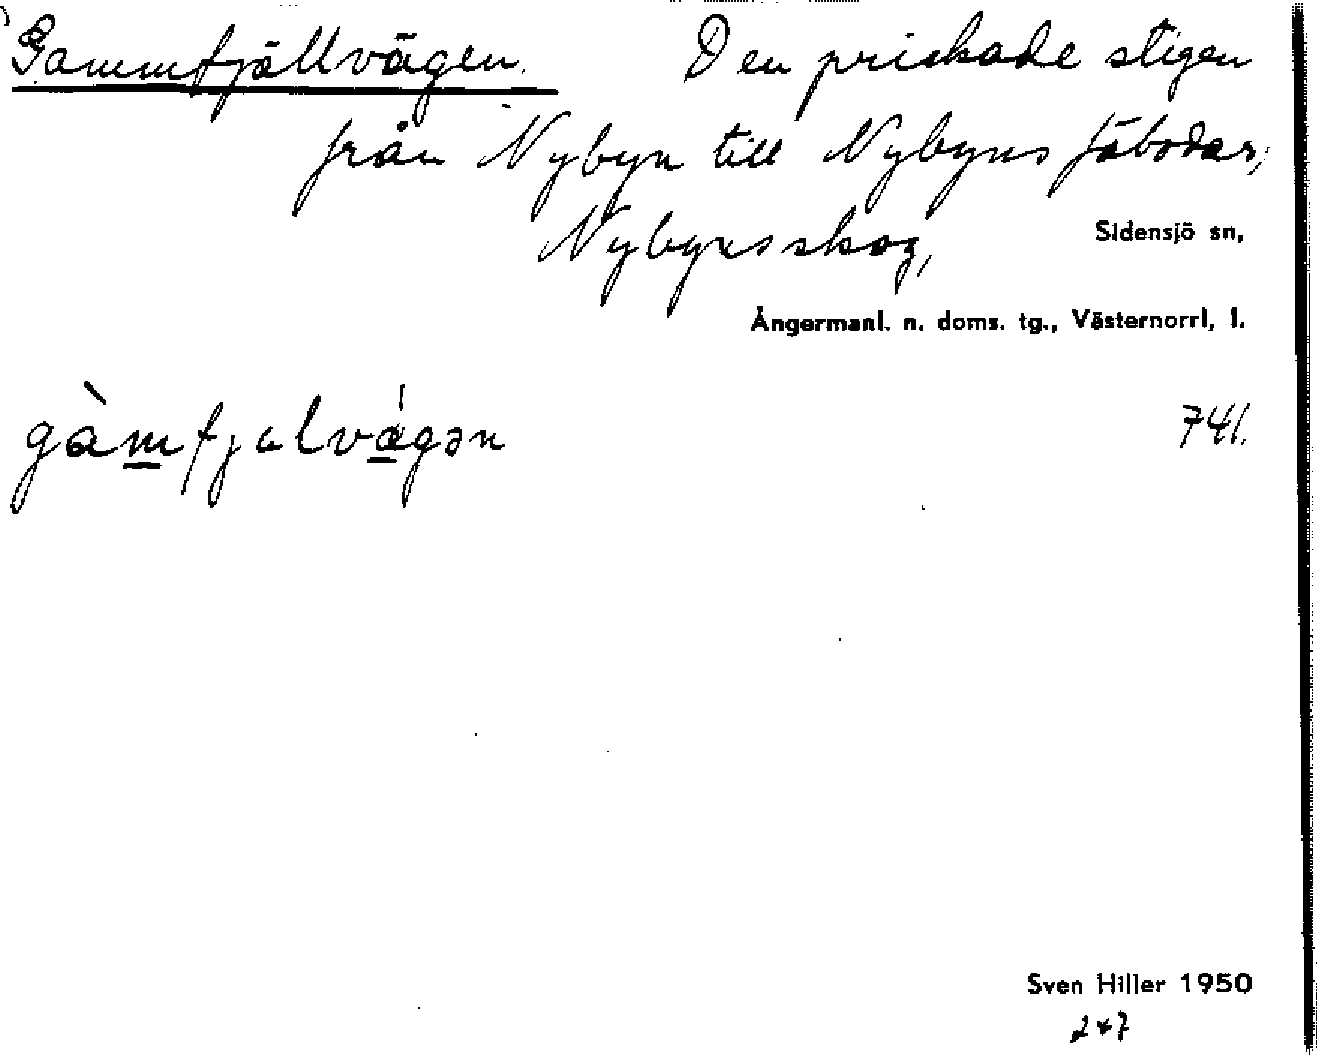 Gammfjällvägen. Den prickade stigen
från Nybyn till Nybyns fäbodar,
Nybyns skog, Sidensjö sn,
Ångermanl. n. doms. tg., Västernorrl, l.
gàmfjalvágən 741.
Sven Hiller 1950
247